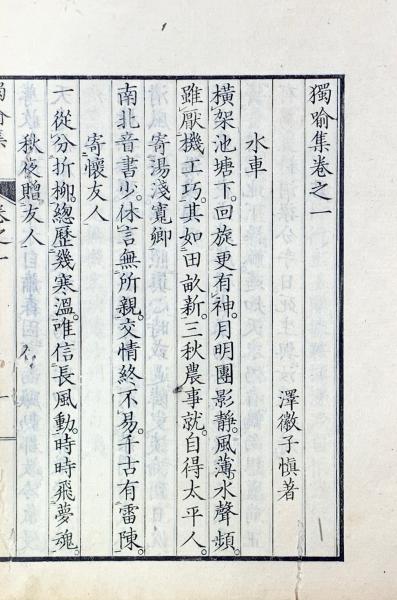 獨喻集卷之一
澤徽子愼著
水車
橫架池塘下。回旋更有神。月明團影靜。風薄水聲頻。
雖厭機工巧。其如田畝新。三秋農事就。自得太平人。
寄湯淺寬卿
南北音書少。休言無所親。交情終不易。千古有雷陳。
寄懷友人
一從分折柳。緫歷幾寒溫。唯信長風動。時時飛夢魂。
秋夜贈友人